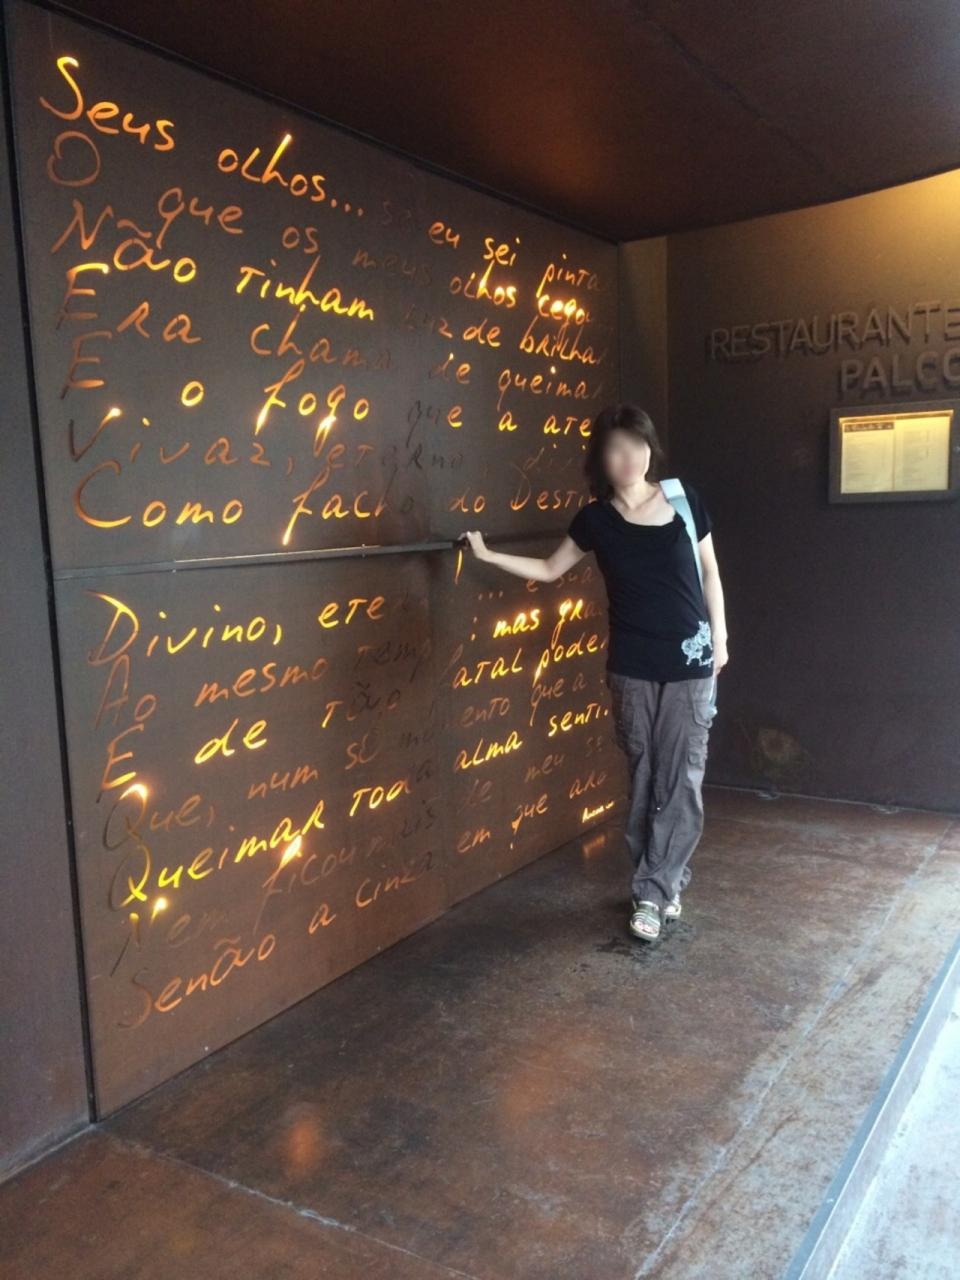 Seus olhos... se eu sei pinta
O que os meus olhos cegou
Não tinham luz de brilhar
Era chama de queimar
E o fogo que a ateo
Vivaz, eterno, divi
Como facho do Destin
Divino, eter ... e sua
Ao mesmo temp : mas gra
E de tão fatal poder
Que, num só momento que a
Queimar toda alma senti.
Nem ficou mais de meu se
Senão a cinza em que ard
RESTAURANTE
PALCO